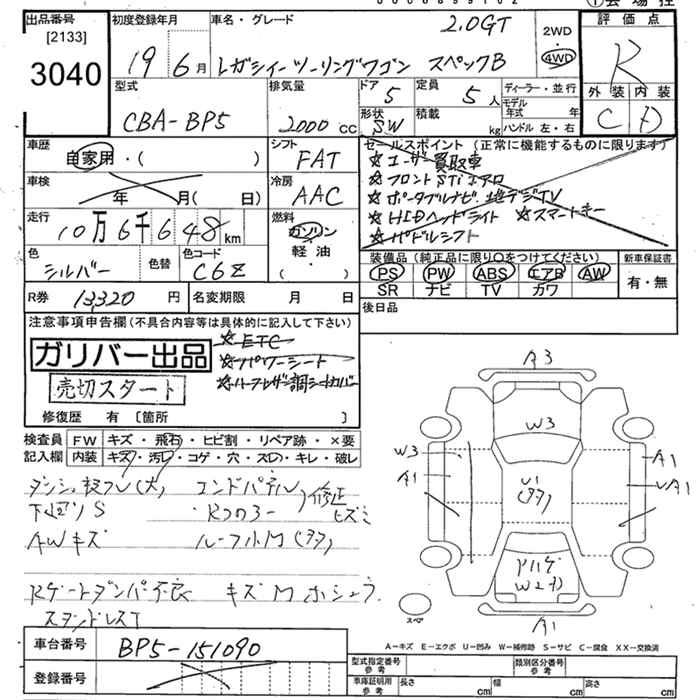 出品番号 [2133]
3040
初度登録年月 19 6月
車名・グレード 2.0GT
レガシィーツーリングワゴン スペックB
2WD
4WD
評価点
R
外装 内装
C D
型式 CBA-BP5
排気量 2000 CC
ドア 5 形状 SW
定員 5人 積載 kg
ディーラー・並行
モデル年式 年
ハンドル 左・右
車歴 自家用・( )
シフト FAT
車検 年 月( 日)
冷房 AAC
走行 10万6千648km
燃料 ガソリン 軽油 ・( )
色 シルバー 色替 色コード C6Z
R券 13320円 名変期限 月 日
セールスポイント (正常に機能するものに限ります)
☆ユーザー買取車
☆フロントSTiエアロ
☆ポータブルナビ.地デジTV
☆HIDヘッドライト ☆スマートキー
☆パドルシフト
装備品 (純正品に限り○をつけてください)
PS PW ABS エアB AW
SR ナビ TV カワ
新車保証書 有・無
後日品
注意事項申告欄(不具合内容等は具体的に記入して下さい)
ガリバー出品
売切スタート
☆ETC
☆パワーシート
☆ハーフレザー調シートカバー
修復歴 有 〔箇所 〕
検査員記入欄
FW キズ・飛石・ヒビ割・リペア跡・×要
内装 キズ・汚レ・コゲ・穴・スレ・キレ・破レ
ダッシュ エンドパネル 修正
下回りS Rフロアー ヒズミ
AWキズ ルーフ小M(多)
Rゲートダンパ不良 キズMホシュウ
車台番号 BP5-151090
登録番号
A3
W3
W3
A1
U1
(多)
A1
UA1
W2
A1
スペ
A-キズ E-エクボ U-凹み W-補修跡 S-サビ C-腐食 XX-交換済
型式指定番号 参考 類別区分番号 参考
車庫証明用 参考 長さ cm 幅 cm 高さ cm